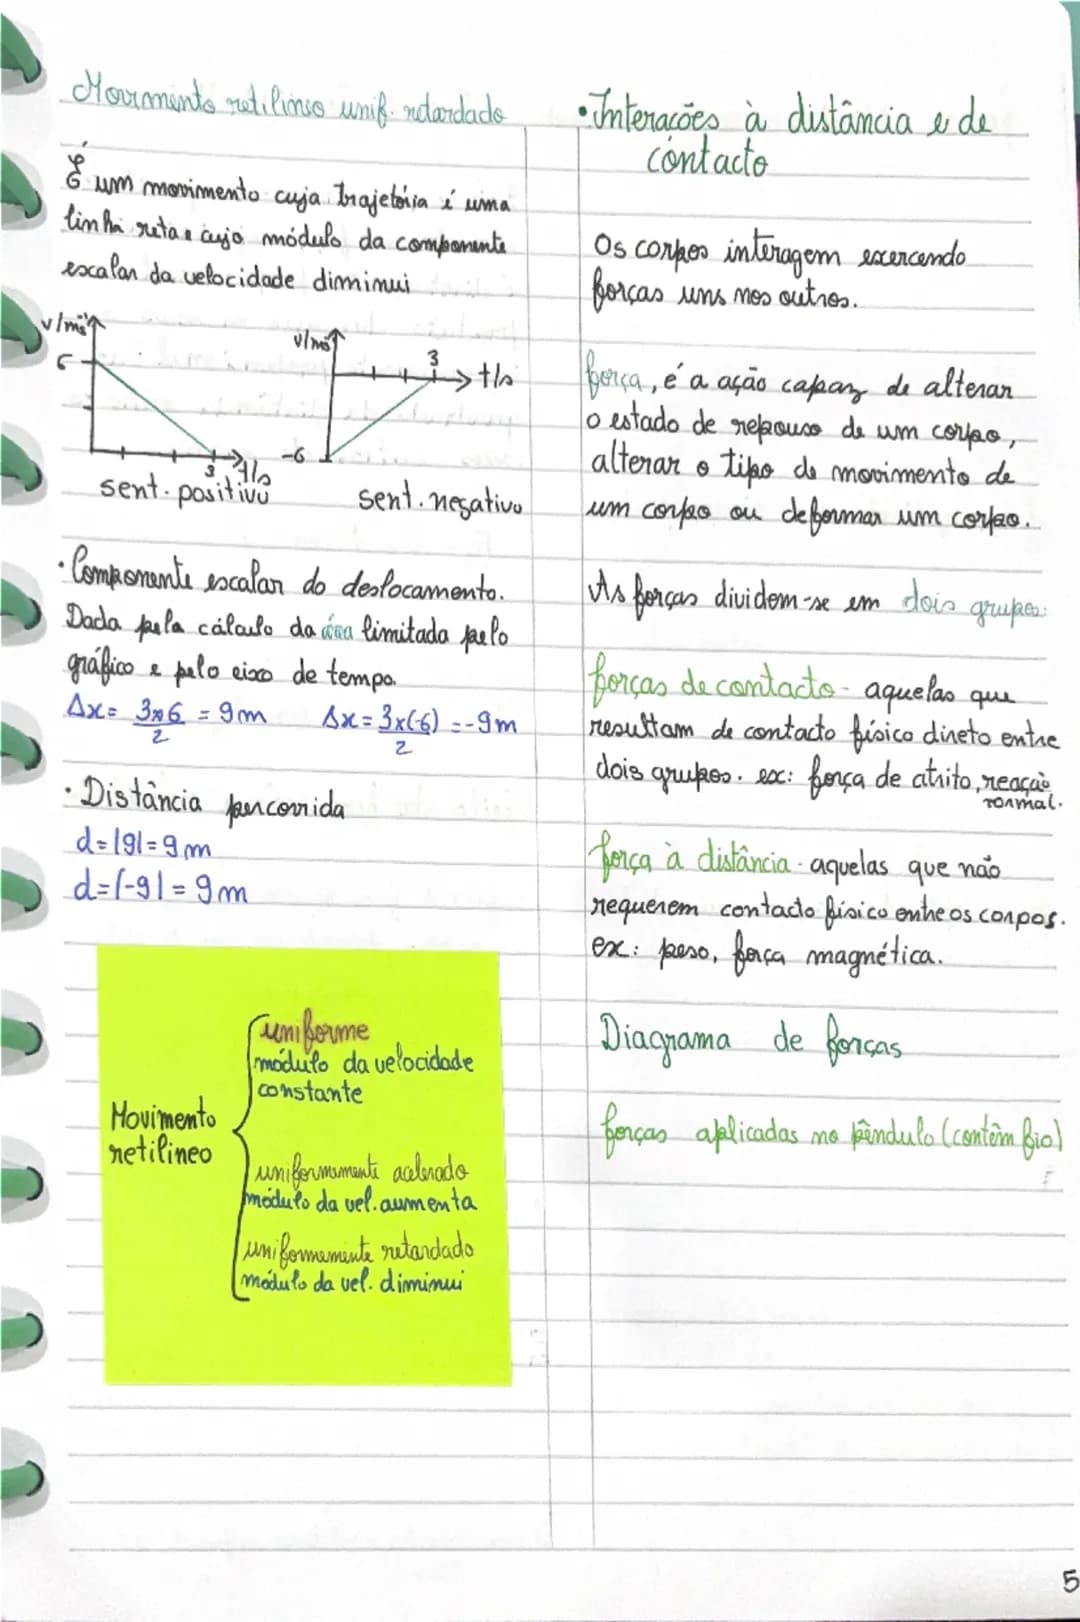 Movimento retilineo unif. retardado
É um movimento cuja trajetória é uma
linha reta e cujo módulo da componente
escalar da velocidade diminui
v/ms⁻¹
6
3
t/s
sent. positivo
v/ms⁻¹
3
t/s
-6
sent. negativo
· Componente escalar do deslocamento.
Dada pela cálculo da área limitada pelo
gráfico e pelo eixo de tempo.
Δx= 3x6/2 = 9m Δx= 3x(-6)/2 = -9m
· Distância percorrida
d=|9|=9m
d=|-9|=9m
Movimento
retilineo
uniforme
módulo da velocidade
constante
uniformemente acelerado
módulo da vel. aumenta
uniformemente retardado
módulo da vel. diminui
• Interações à distância e de
contacto
Os corpos interagem exercendo
forças uns nos outros.
força, é a ação capaz de alterar
o estado de repouso de um corpo,
alterar o tipo de movimento de
um corpo ou deformar um corpo.
As forças dividem-se em dois grupos:
forças de contacto - aquelas que
resultam de contacto físico direto entre
dois grupos. ex: força de atrito, reação
normal.
força à distância - aquelas que não
requerem contacto físico entre os corpos.
ex: peso, força magnética.
Diagrama de forças
forças aplicadas no pêndulo (contêm fio)
5